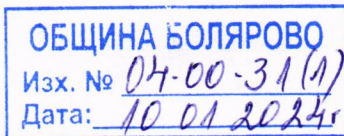 ОБЩИНА БОЛЯРОВО
Изх. № 04-00-31(1)
Дата: 10 01 2024г